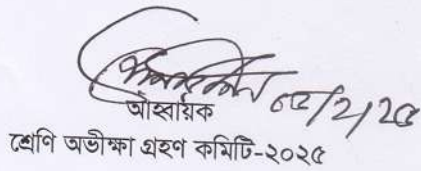 ০৫/2/২৫
আহবায়ক
শ্রেণি অভীক্ষা গ্রহণ কমিটি-২০২৫